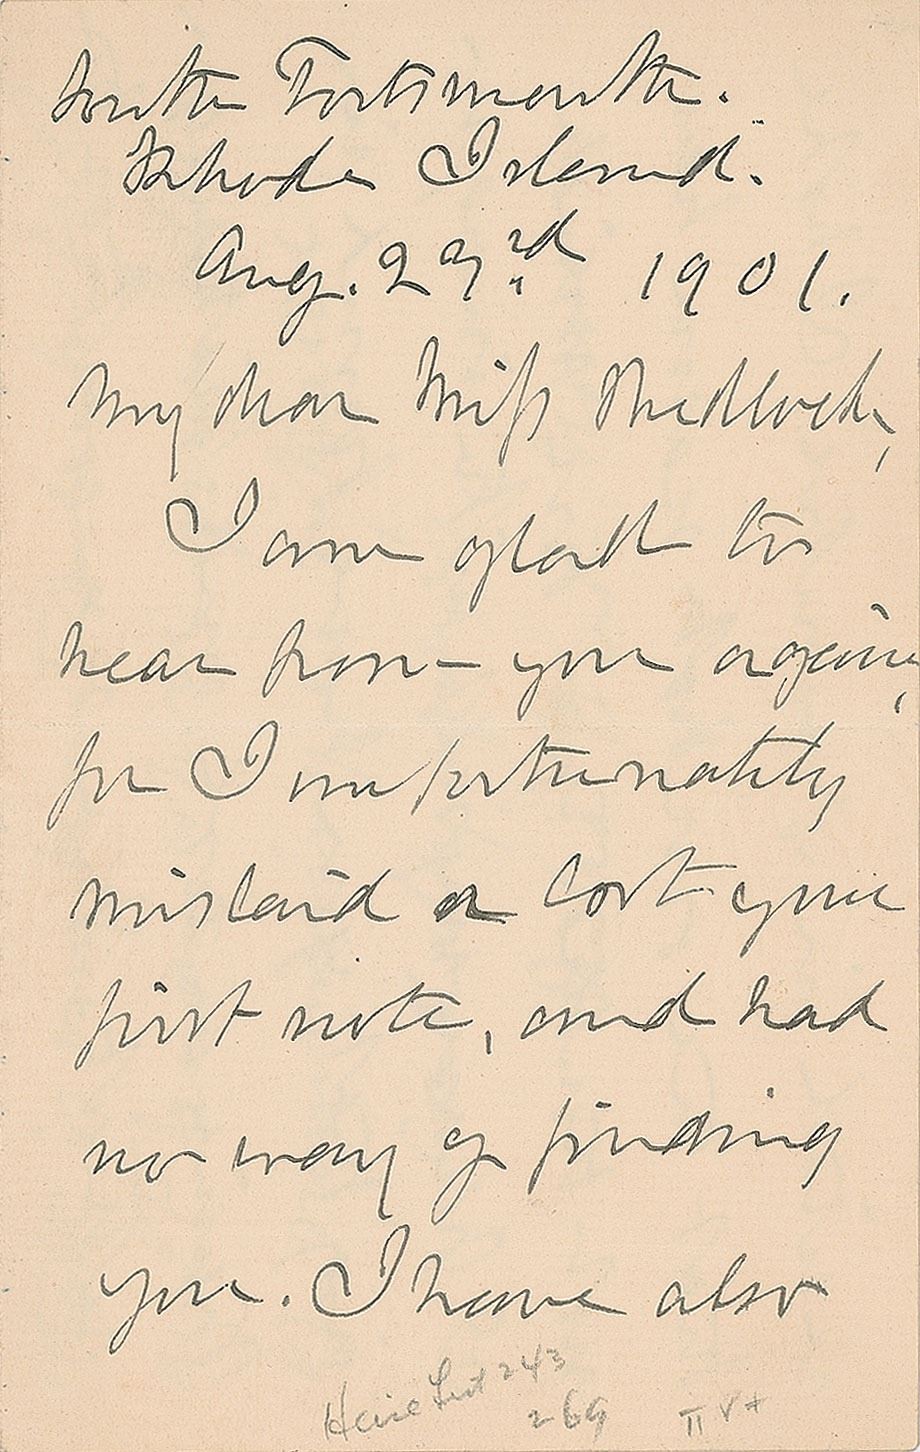 South Portsmouth.
Rhode Island.
Aug. 23rd 1901.
My dear Miss Medlock,
I am glad to
hear from you again,
for I unfortunately
mislaid or lost your
first note, and had
no way of finding
you. I have also
243
269